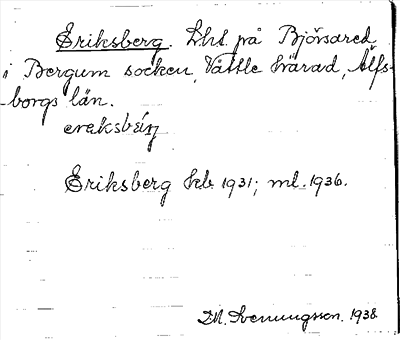 Eriksberg. Lht. på Björsared
i Bergum socken, Vättle härad, Älfs-
borgs län.
ereksbérj
Eriksberg kb. 1931; ml. 1936.
M. Svenungsson. 1938.